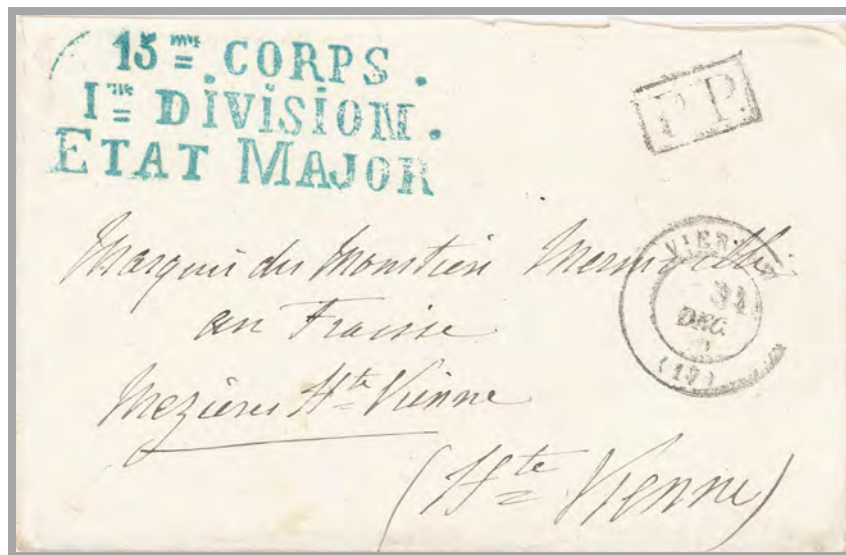 15me. CORPS.
Ime DIVISION.
ETAT MAJOR
P.P.
Marquis du Moustier
au Fraisse
Mezières Hte Vienne
(Hte Vienne)
VIER
31
DEC.
(17)